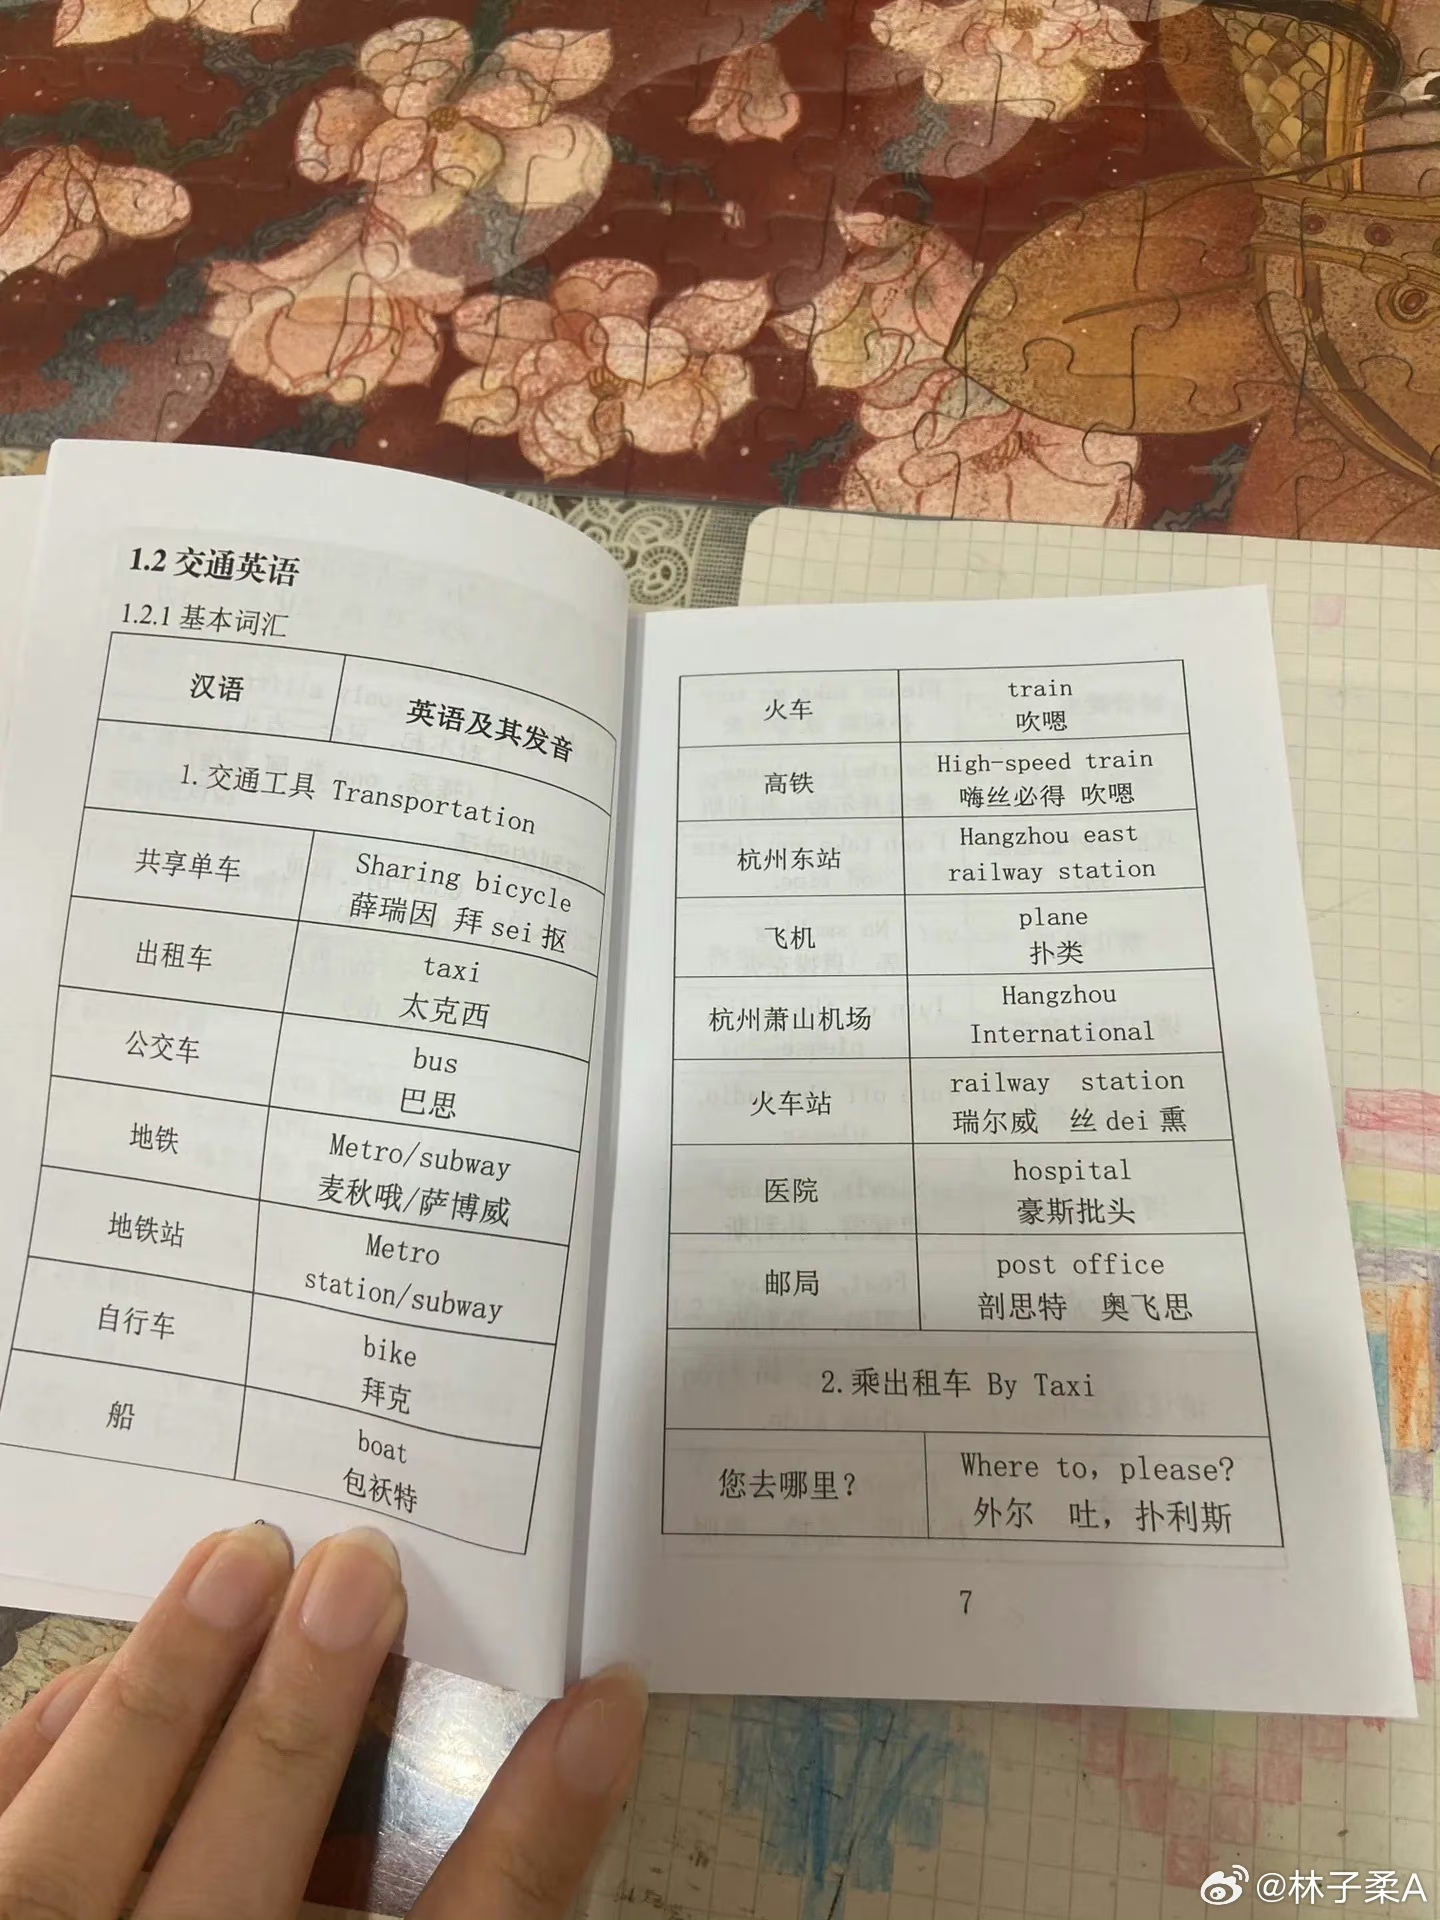 1.2 交通英语
1.2.1 基本词汇
汉语
英语及其发音
1. 交通工具 Transportation
共享单车
Sharing bicycle
薛瑞因 拜 sei 抠
出租车
taxi
太克西
公交车
bus
巴思
地铁
Metro/subway
麦秋哦/萨博威
地铁站
Metro
station/subway
自行车
bike
拜克
船
boat
包袄特
火车
train
吹嗯
高铁
High-speed train
嗨丝必得 吹嗯
杭州东站
Hangzhou east
railway station
飞机
plane
扑类
杭州萧山机场
Hangzhou
International
火车站
railway station
瑞尔威 丝 dei 熏
医院
hospital
豪斯批头
邮局
post office
剖思特 奥飞思
2.乘出租车 By Taxi
您去哪里？
Where to, please?
外尔 吐，扑利斯
7
@林子柔A